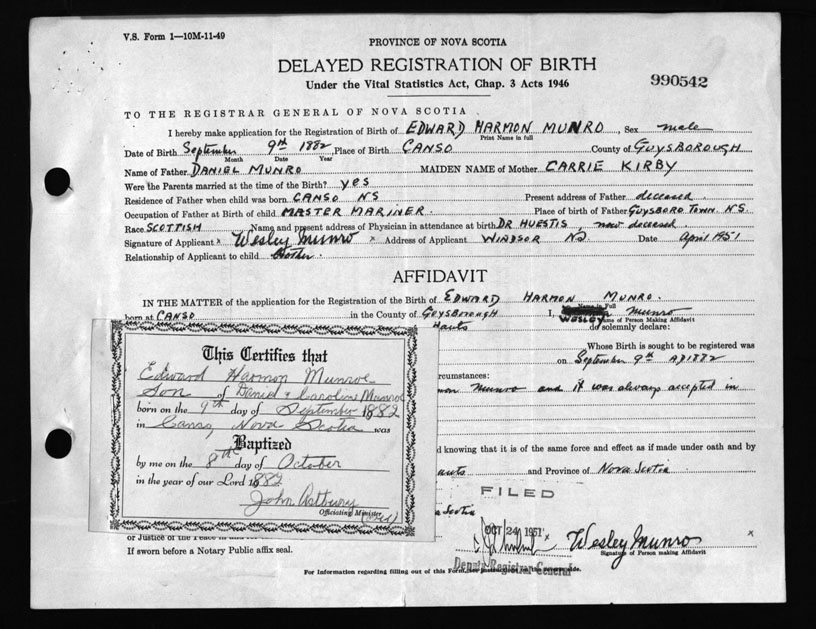 V.S. Form 1—10M-11-49
PROVINCE OF NOVA SCOTIA
DELAYED REGISTRATION OF BIRTH
Under the Vital Statistics Act, Chap. 3 Acts 1946
990542
TO THE REGISTRAR GENERAL OF NOVA SCOTIA
I hereby make application for the Registration of Birth of EDWARD HARMON MUNRO, Sex male
Print Name in full
Date of Birth September 9th 1882, Place of Birth CANSO County of GUYSBOROUGH
Month Date Year
Name of Father DANIEL MUNRO MAIDEN NAME of Mother CARRIE KIRBY
Were the Parents married at the time of the Birth? yes
Residence of Father when child was born CANSO NS Present address of Father deceased
Occupation of Father at Birth of child MASTER MARINER. Place of birth of Father GUYSBORO TOWN. N.S.
Race SCOTTISH Name and present address of Physician in attendance at birth DR HUESTIS, now deceased
Signature of Applicant x Wesley Munro x Address of Applicant WINDSOR NS Date April 1951
Relationship of Applicant to child Brother.
AFFIDAVIT
IN THE MATTER of the application for the Registration of the Birth of EDWARD HARMON MUNRO.
Name in Full
born at CANSO in the County of GUYSBOROUGH I, WESLEY Munro
Name of Person Making Affidavit
Hants do solemnly declare:
Whose Birth is sought to be registered was
on September 9th AD 1882
circumstances:
mon Munro and it was always accepted in
d knowing that it is of the same force and effect as if made under oath and by
ants and Province of Nova Scotia
a Scotia
This Certifies that
Edward Harmon Munroe
Son of Daniel & Caroline Munroe
born on the 9th day of September 1882
in Canso, Nova Scotia was
Baptized
by me on the 8th day of October
in the year of our Lord 1882
John Astbury
Officiating Minister
FILED
OCT 24 1951
x Wesley Munro x
Signature of Person making Affidavit
Deputy Registrar General
or Justice of the Peace in and
If sworn before a Notary Public affix seal.
For Information regarding filling out of this Form, see instructions on the reverse side.